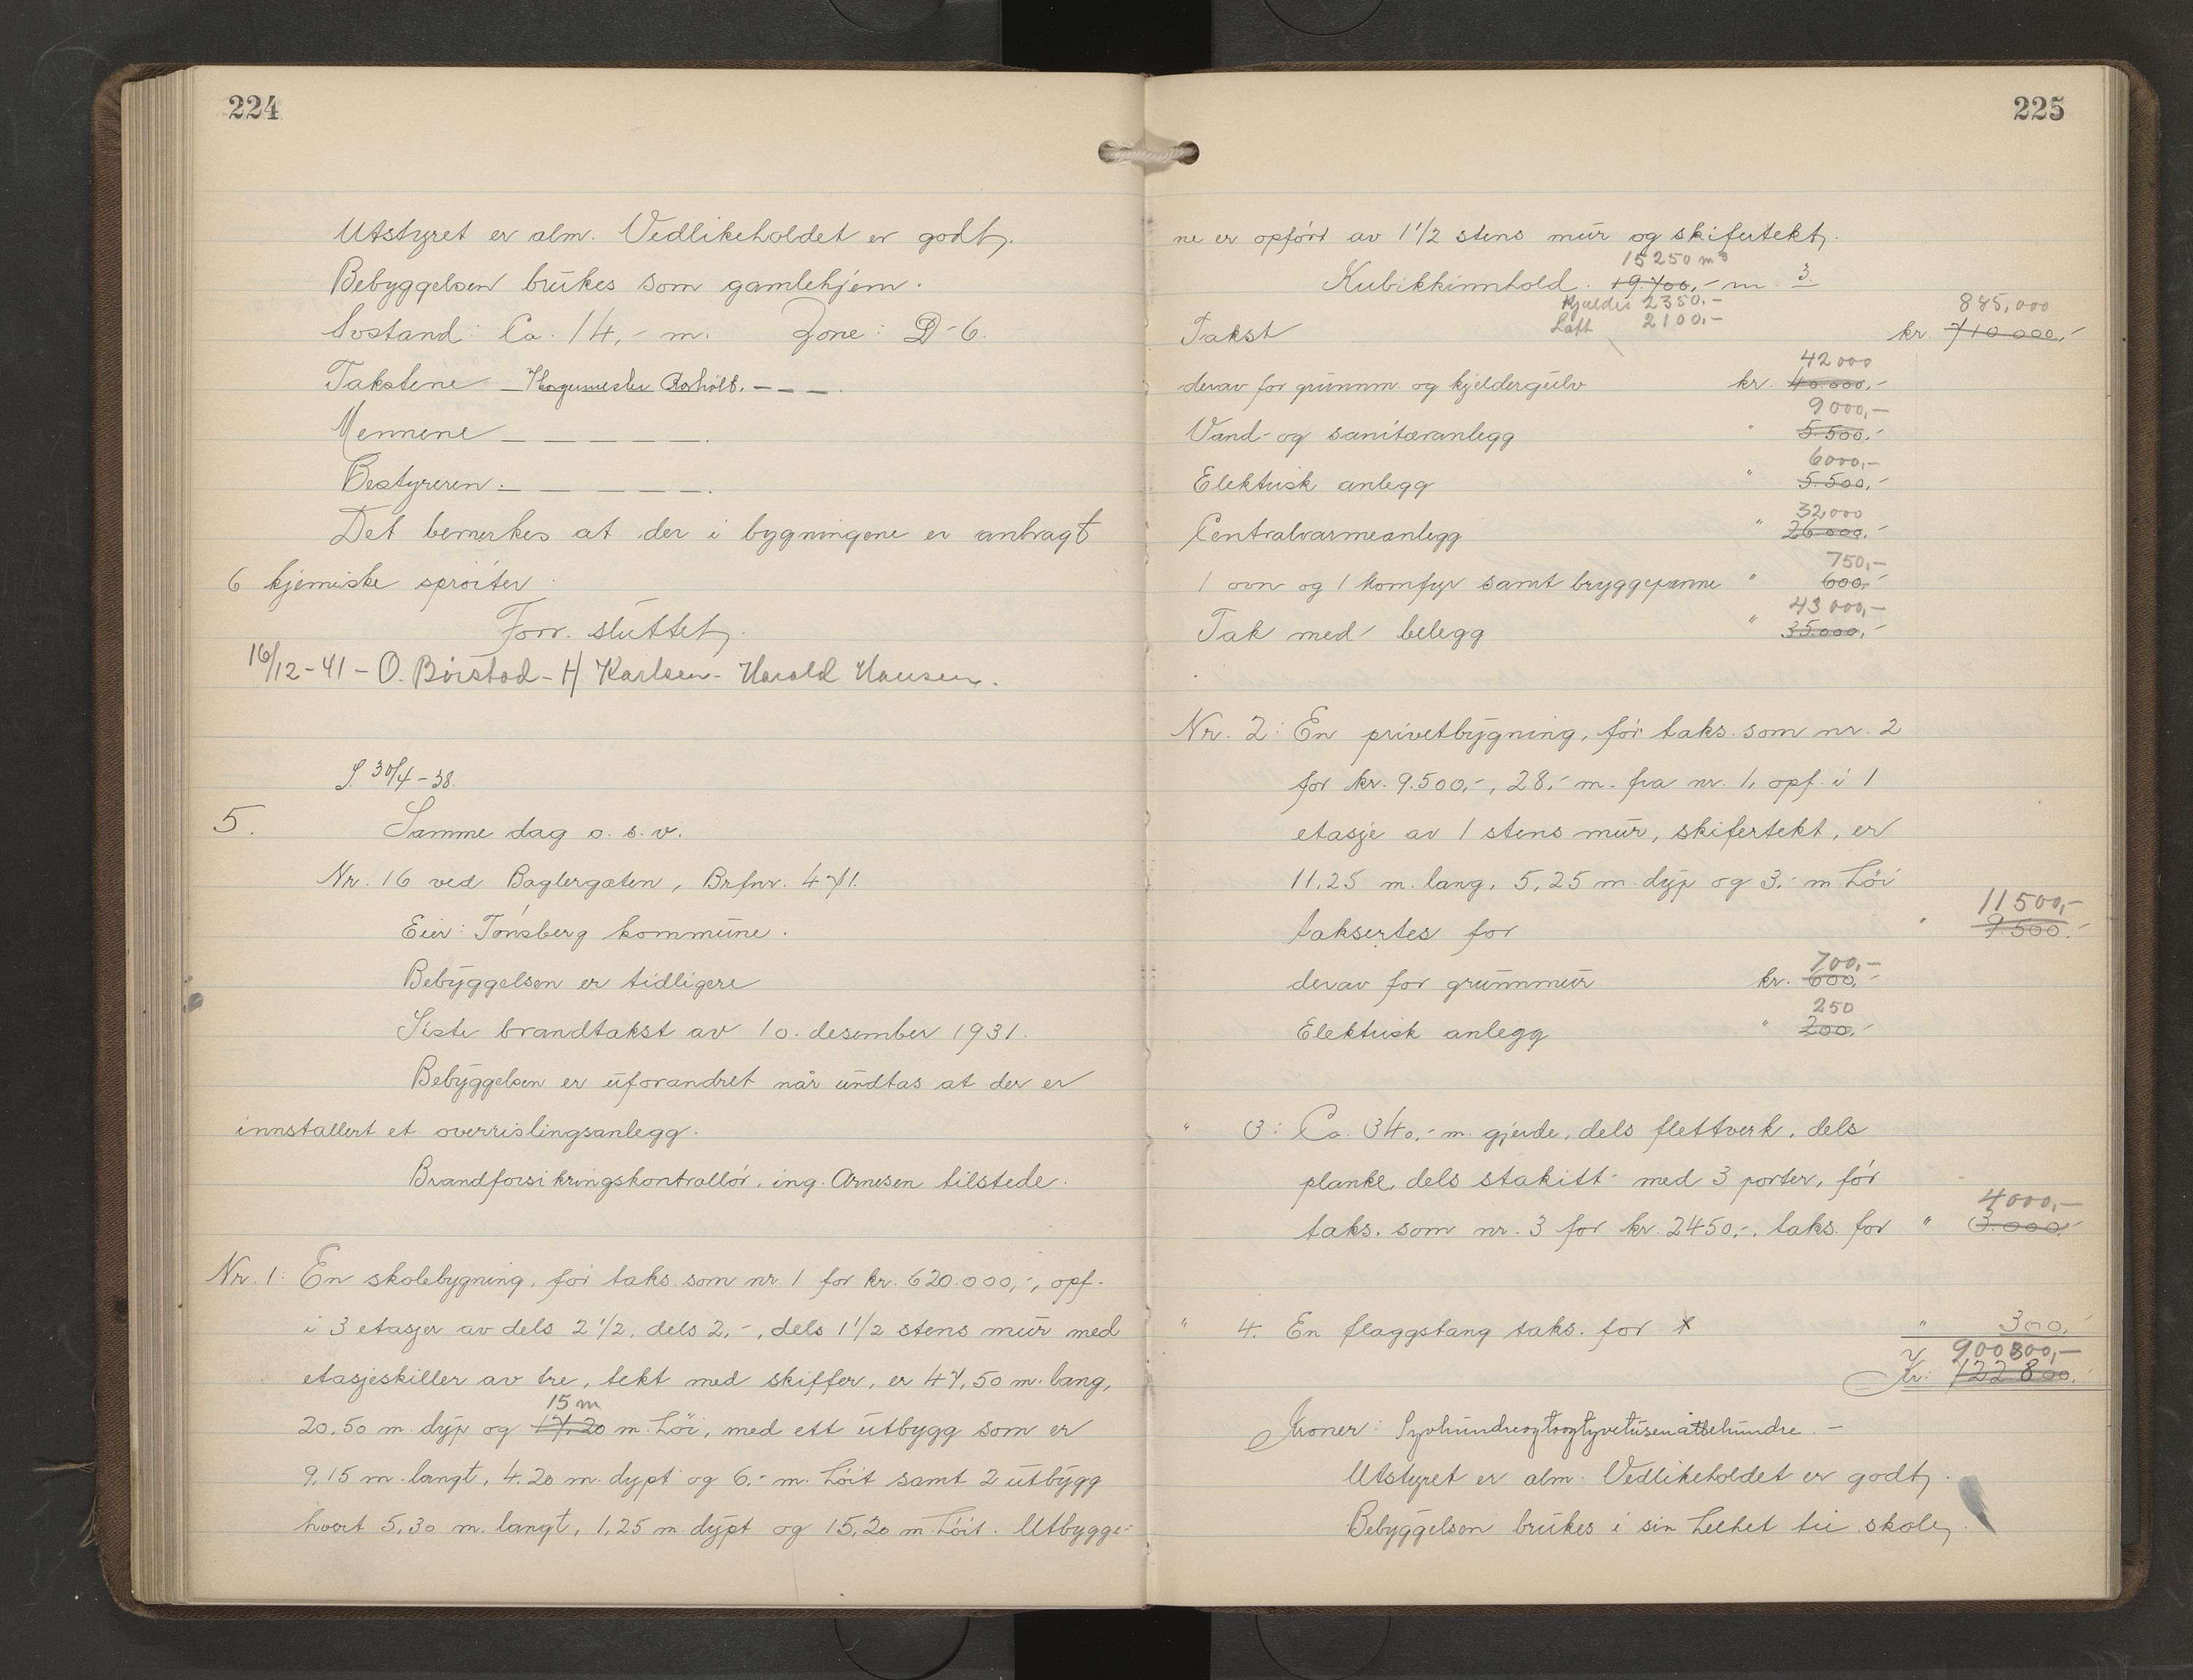 224
Utstyret er alm. Vedlikeholdet er godt.
Bebyggelsen brukes som gamlehjem.
Avstand: Ca. 14,- m. Zone: D-6.
Takstene
Mennene
Bestyreren.
Det bemerkes at der i bygningene er anbragt
6 kjemiske sprøiter.
Forr. sluttet.
16/12-41 - O. Børstad - H Karlsen - Harald Hansen.
S. 30/4-38.
5. Samme dag o.s.v.
Nr. 16 ved Baglergaten, Brfnr. 471.
Eier: Tønsberg kommune.
Bebyggelsen er tidligere
Siste brandtakst av 10. desember 1931.
Bebyggelsen er uforandret når undtas at der er
innstallert et overrislingsanlegg.
Brandforsikringskontrollør, ing. Arnesen tilstede.
Nr. 1: En skolebygning, før taks. som nr. 1 for kr. 620.000,-, opf.
i 3 etasjer av dels 2 1/2, dels 2,-, dels 1 1/2 stens mur med
etasjeskiller av tre, tekt med skiffer, er 47,50 m. lang,
15 m
20,50 m. dyp og 17,20 m. høi, med ett utbygg som er
9,15 m. langt, 4.20 m. dypt og 6,- m. høit samt 2 utbygg
hvert 5,30 m. langt, 1,25 m. dypt og 15,20 m. høit. Utbygge-
225
ne er opført av 1 1/2 stens mur og skifertekt.
15250 m3
Kubikkinnhold. 19.700,- m. 3.
Kjelder 2350.-
Loft 2100,-
885,000
Takst kr. 710.000,-
42000
derav for grunnm. og kjeldergulv kr. 40.000,-
9000,-
Vand- og sanitæranlegg " 5.500,-
6000,-
Elektrisk anlegg " 5.500,-
32,000
Centralvarmeanlegg " 26.000,-
750,-
1 ovn og 1 komfyr samt bryggepanne " 600,-
43000,-
Tak med belegg " 35.000,-
Nr. 2: En privetbygning, før taks. som nr. 2
for kr. 9.500,-, 28,- m. fra nr. 1, opf. i 1
etasje av 1 stens mur, skifertekt, er
11,25 m. lang, 5,25 m. dyp og 3,- m. høi
11500,-
taksertes for " 9.500.-
700,-
derav for grunnmur kr. 600,-
250
Elektrisk anlegg " 200,-
" 3: Ca. 340,- m. gjerde, dels flettverk, dels
planke, dels stakitt- med 3 porter, før
4000,-
taks. som nr. 3 for kr. 2450,-, taks. for " 3.000,-
" 4. En flaggstang taks. for x " 300,-
900800,-
Kr: 722 800,-
Kroner: Syvhundreogtoogtyvetusenåttehundre. -
Utstyret er alm. Vedlikeholdet er godt.
Bebyggelsen brukes i sin helhet til skole.